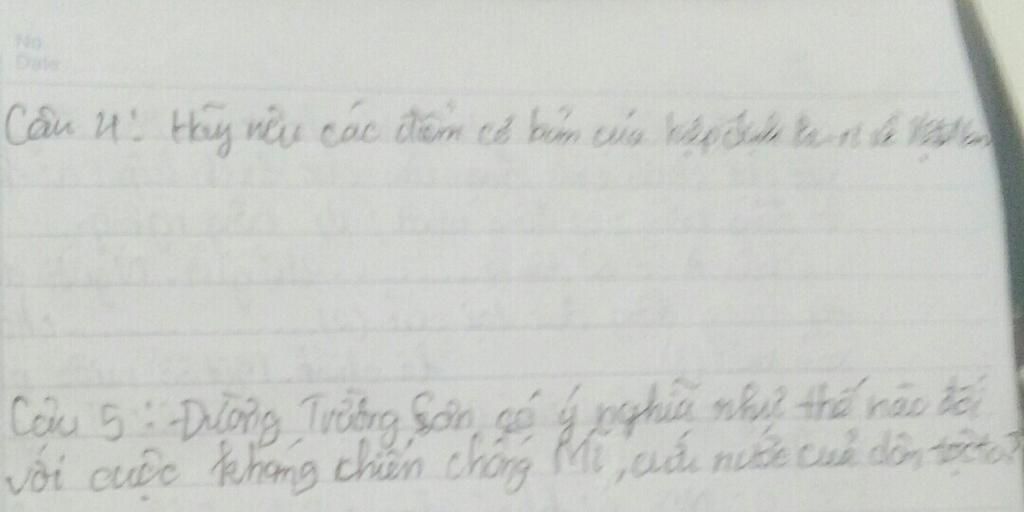 No.
Date
Câu 4: Hãy nêu các điểm cơ bản của hiệp định Pa-ri về Việt Nam
Câu 5: Đường Trường Sơn có ý nghĩa như thế nào đối
với cuộc kháng chiến chống Mĩ, cứu nước của dân tộc ta?